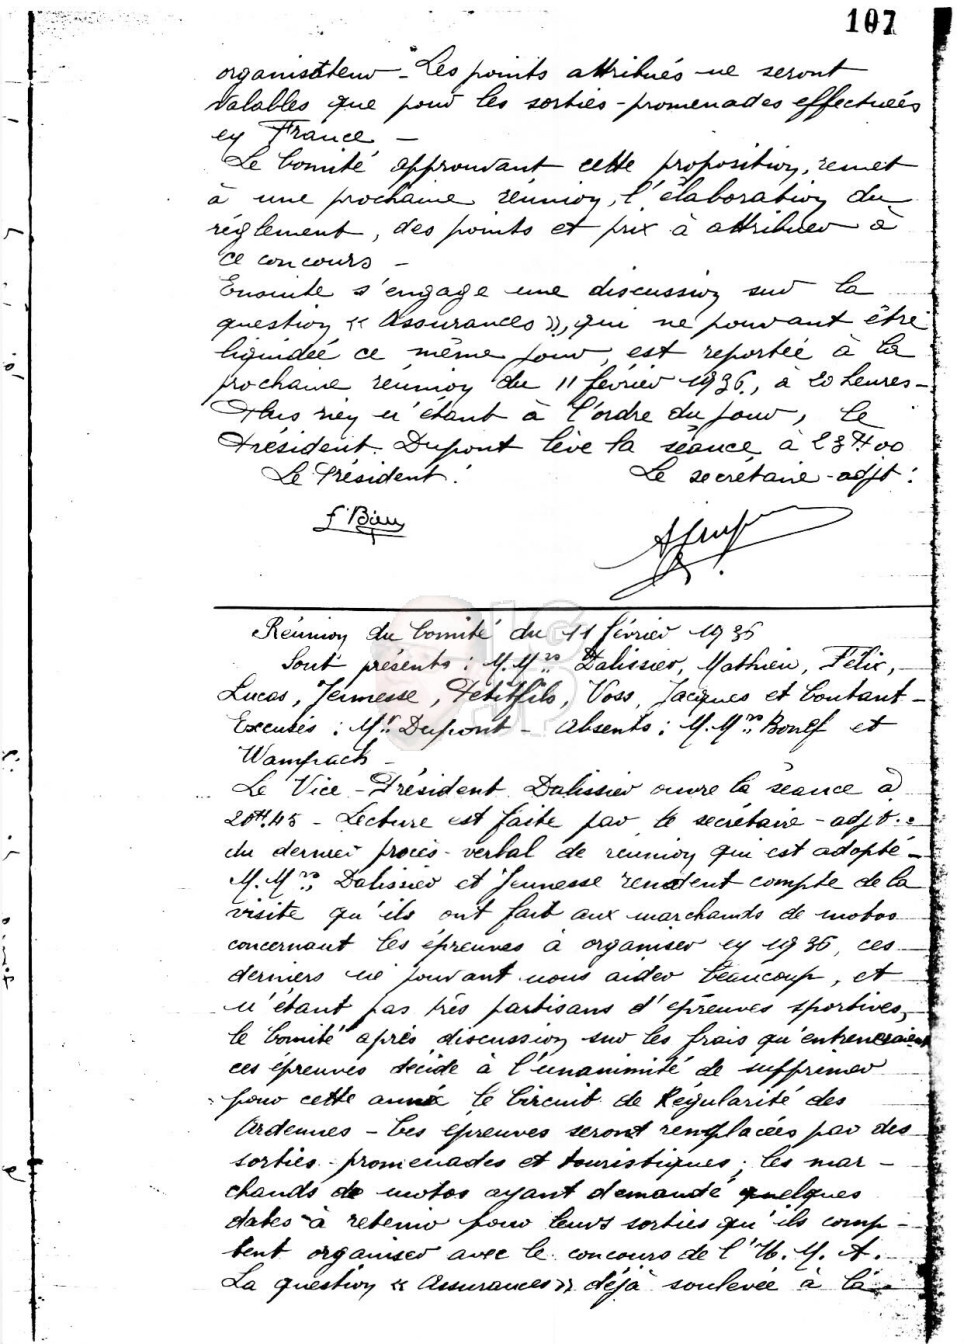 107
organisateur - Les points attribués ne seront
valables que pour les sorties-promenades effectuées
en France -
Le Comité approuvant cette proposition, remet
à une prochaine réunion, l'élaboration du
réglement, des points et prix à attribuer à
ce concours -
Ensuite s'engage une discussion sur la
question « Assurances », qui ne pouvant être
liquidée ce même jour, est reportée à la
prochaine réunion du 11 février 1936, à 20 heures -
Plus rien n'étant à l'ordre du jour, le
Président Dupont lève la séance à 23H00
Le Président : Le secrétaire-adjt :
Réunion du Comité du 11 février 1936
Sont présents : M.Mrs Dalissier, Mathieu, Félix,
Lucas, Jeunesse, Petitfils, Voss, Jacques et Coutant -
Excusés : Mr Dupont - absents : M.Mrs et
Le Vice-Président Dalissier ouvre la séance à
20H.45 - Lecture est faite par le secrétaire-adjt.
du dernier procès-verbal de réunion qui est adopté -
M.Mrs Dalissier et Jeunesse rendent compte de la
visite qu'ils ont fait aux marchands de motos
concernant les épreuves à organiser en 1936, ces
derniers ne pouvant nous aider beaucoup, et
n'étant pas très partisans d'épreuves sportives,
le Comité après discussion sur les frais qu'entreneraient
ces épreuves décide à l'unanimité de supprimer
pour cette année le Circuit de Régularité des
Ardennes - Ces épreuves seront remplacées par des
sorties-promenades et touristiques ; les mar-
chands de motos ayant demandé quelques
dates à retenir pour leurs sorties qu'ils comp-
tent organiser avec le concours de l'U. M. A.
La question « Assurances » déjà soulevée à la